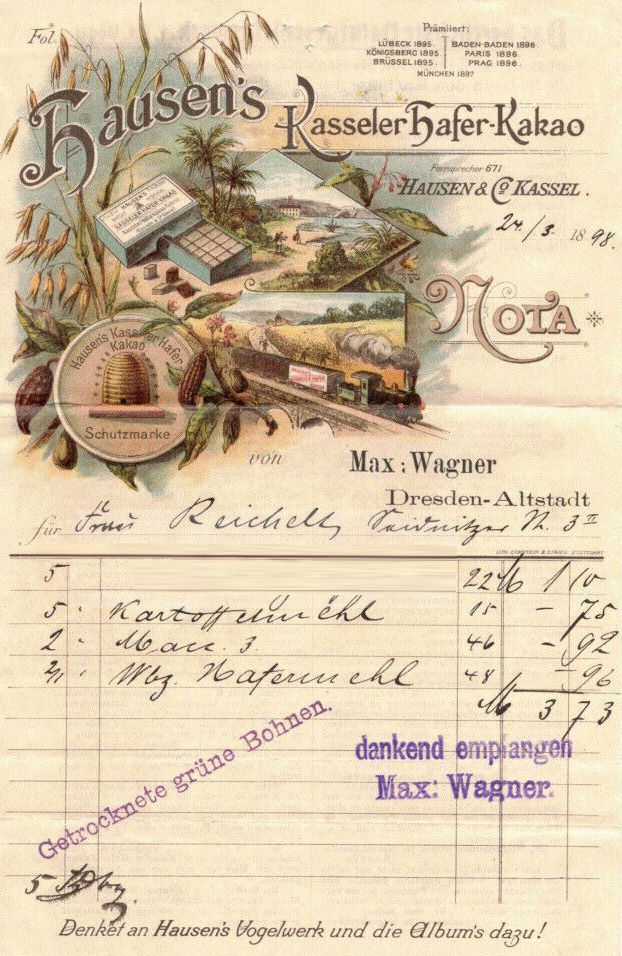 Fol.
Prämiiert:
LÜBECK 1895. BADEN-BADEN 1896
KÖNIGSBERG 1895. PARIS 1896
BRÜSSEL 1895. PRAG 1896.
MÜNCHEN 1897
Hausen's
Kasseler Hafer-Kakao
Fernsprecher 671
HAUSEN & Co KASSEL.
24./3. 1898.
HAUSEN'S
KASSELER HAFER-KAKAO
NOTA
Hausen's Kasseler Hafer
Kakao
Schutzmarke
von Max: Wagner
Dresden-Altstadt
für Frau Reichelt, Seidnitzer St. 3 II
5 22 M 1 10
5 " Kartoffelmehl 15 – 75
2 " Macc. 3. 46 – 92
2/1 " Wbz. Hafermehl 48 – 96
M 3 73
Getrocknete grüne Bohnen.
dankend empfangen
Max: Wagner.
5
Denket an Hausen's Vogelwerk und die Album's dazu!